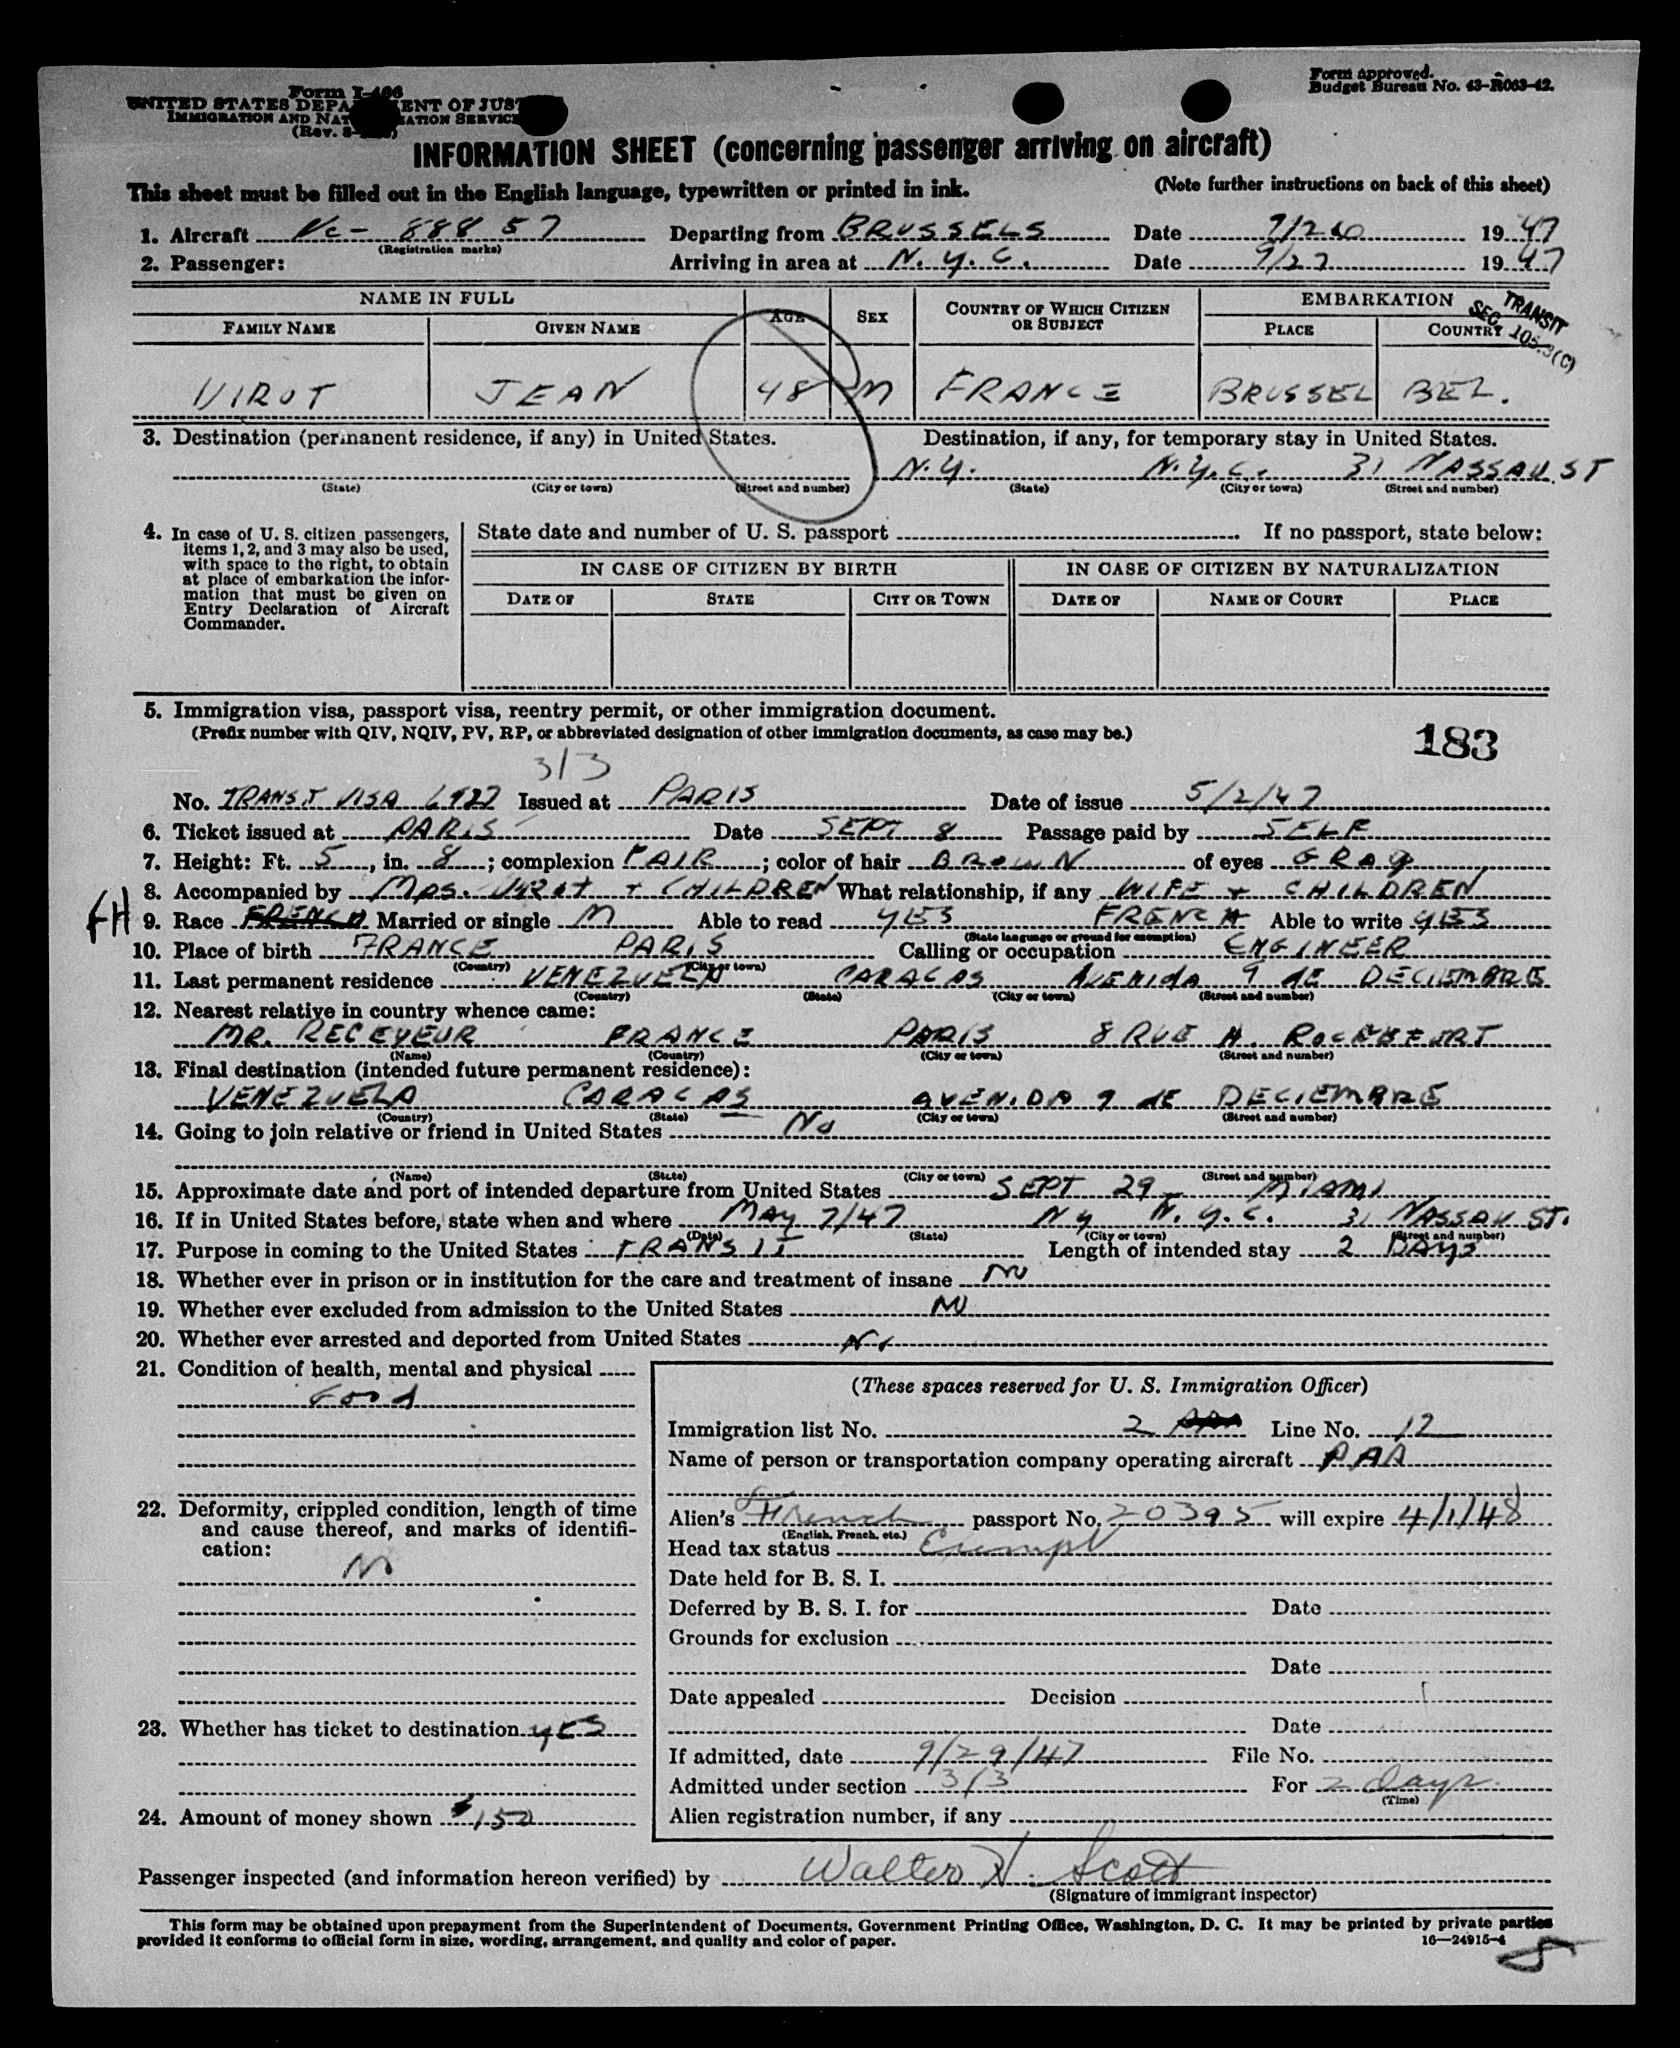 Form I-466
UNITED STATES DEPARTMENT OF JUSTICE
IMMIGRATION AND NATURALIZATION SERVICE
(Rev. 8-
Form approved.
Budget Bureau No. 43-R063-42.
INFORMATION SHEET (concerning passenger arriving on aircraft)
This sheet must be filled out in the English language, typewritten or printed in ink. (Note further instructions on back of this sheet)
1. Aircraft NC- 88857 Departing from BRUSSELS Date 9/26 1947
(Registration marks)
2. Passenger: Arriving in area at N.Y.C. Date 9/27 1947
NAME IN FULL AGE SEX COUNTRY OF WHICH CITIZEN OR SUBJECT EMBARKATION
FAMILY NAME GIVEN NAME PLACE COUNTRY
TRANSIT
SEC. 105.3(C)
VIROT JEAN 48 M FRANCE BRUSSEL BEL.
3. Destination (permanent residence, if any) in United States. Destination, if any, for temporary stay in United States.
N.Y. N.Y.C. 31 NASSAU ST
(State) (City or town) (Street and number) (State) (City or town) (Street and number)
4. In case of U. S. citizen passengers, items 1, 2, and 3 may also be used, with space to the right, to obtain at place of embarkation the information that must be given on Entry Declaration of Aircraft Commander.
State date and number of U. S. passport If no passport, state below:
IN CASE OF CITIZEN BY BIRTH IN CASE OF CITIZEN BY NATURALIZATION
DATE OF STATE CITY OR TOWN DATE OF NAME OF COURT PLACE
5. Immigration visa, passport visa, reentry permit, or other immigration document.
(Prefix number with QIV, NQIV, PV, RP, or abbreviated designation of other immigration documents, as case may be.)
183
3/3
No. TRANSIT VISA 6927 Issued at PARIS Date of issue 5/2/47
6. Ticket issued at PARIS Date SEPT 8 Passage paid by SELF
7. Height: Ft. 5, in. 8; complexion FAIR; color of hair BROWN of eyes GRAY
8. Accompanied by MRS. Virot + CHILDREN What relationship, if any WIFE + CHILDREN
FH
9. Race FRENCH Married or single M Able to read YES FRENCH Able to write YES
(State language or ground for exemption)
10. Place of birth FRANCE PARIS Calling or occupation ENGINEER
(Country) (City or town)
11. Last permanent residence VENEZUELA CARACAS AVENIDA 9 de DECIEMBRE
(Country) (State) (City or town) (Street and number)
12. Nearest relative in country whence came:
MR. RECEVEUR FRANCE PARIS 8 RUE H. ROCHEFORT
(Name) (Country) (City or town) (Street and number)
13. Final destination (intended future permanent residence):
VENEZUELA CARACAS AVENIDA 9 de DECIEMBRE
(Country) (State) (City or town) (Street and number)
14. Going to join relative or friend in United States No
(Name) (State) (City or town) (Street and number)
15. Approximate date and port of intended departure from United States SEPT 29 MIAMI
16. If in United States before, state when and where MAY 7/47 NY N.Y.C. 31 NASSAU ST.
(Date) (State) (City or town) (Street and number)
17. Purpose in coming to the United States TRANSIT Length of intended stay 2 DAYS
18. Whether ever in prison or in institution for the care and treatment of insane No
19. Whether ever excluded from admission to the United States No
20. Whether ever arrested and deported from United States No
21. Condition of health, mental and physical
Good
22. Deformity, crippled condition, length of time and cause thereof, and marks of identification:
No
23. Whether has ticket to destination YES
24. Amount of money shown $150
(These spaces reserved for U. S. Immigration Officer)
Immigration list No. 2 Line No. 12
Name of person or transportation company operating aircraft PAA
Alien's French passport No. 20395 will expire 4/1/48
(English, French, etc.)
Head tax status Exempt
Date held for B. S. I.
Deferred by B. S. I. for Date
Grounds for exclusion
Date
Date appealed Decision
Date
If admitted, date 9/29/47 File No.
Admitted under section 3/3 For 2 days
(Time)
Alien registration number, if any
Passenger inspected (and information hereon verified) by Walter H. Scott
(Signature of immigrant inspector)
This form may be obtained upon prepayment from the Superintendent of Documents, Government Printing Office, Washington, D. C. It may be printed by private parties
provided it conforms to official form in size, wording, arrangement, and quality and color of paper. 16—24915-4
5